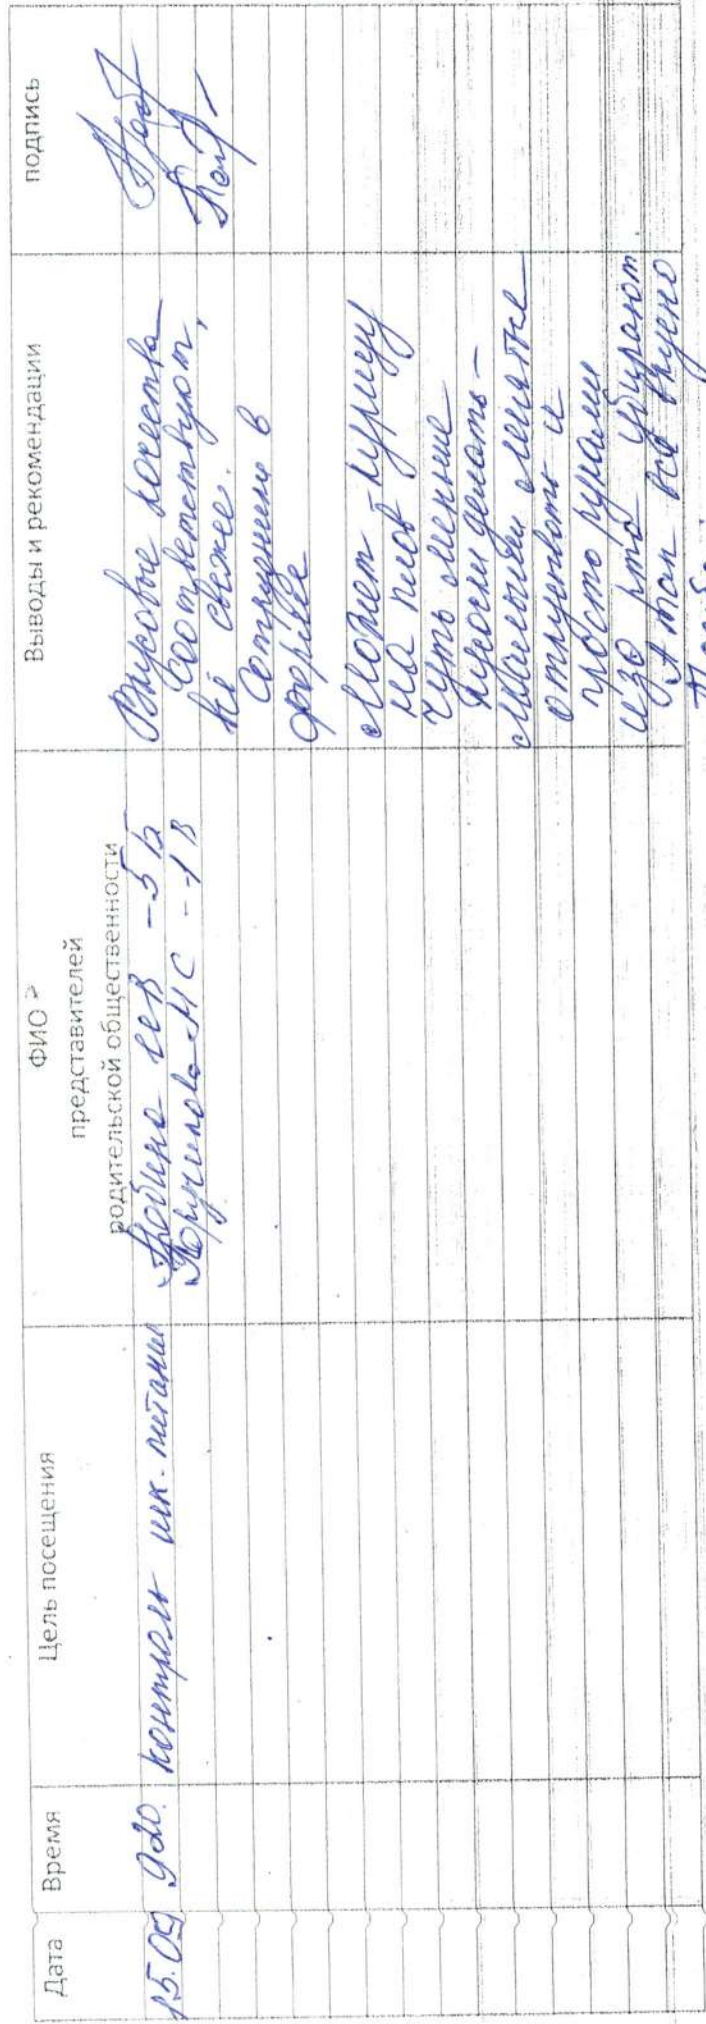 Дата
Время
Цель посещения
ФИО
представителей
родительской общественности
Выводы и рекомендации
подпись
15.09
9:20.
контроль шк. питания
-5 Б
МС -1 В
Вкусовые качества
соответствуют,
всё свежее.
Сотрудники в
форме
Может курицу
на плов
чуть меньше
кусочки делать -
отпускать и
просто руками
изо рта убирают
А так всё вкусно